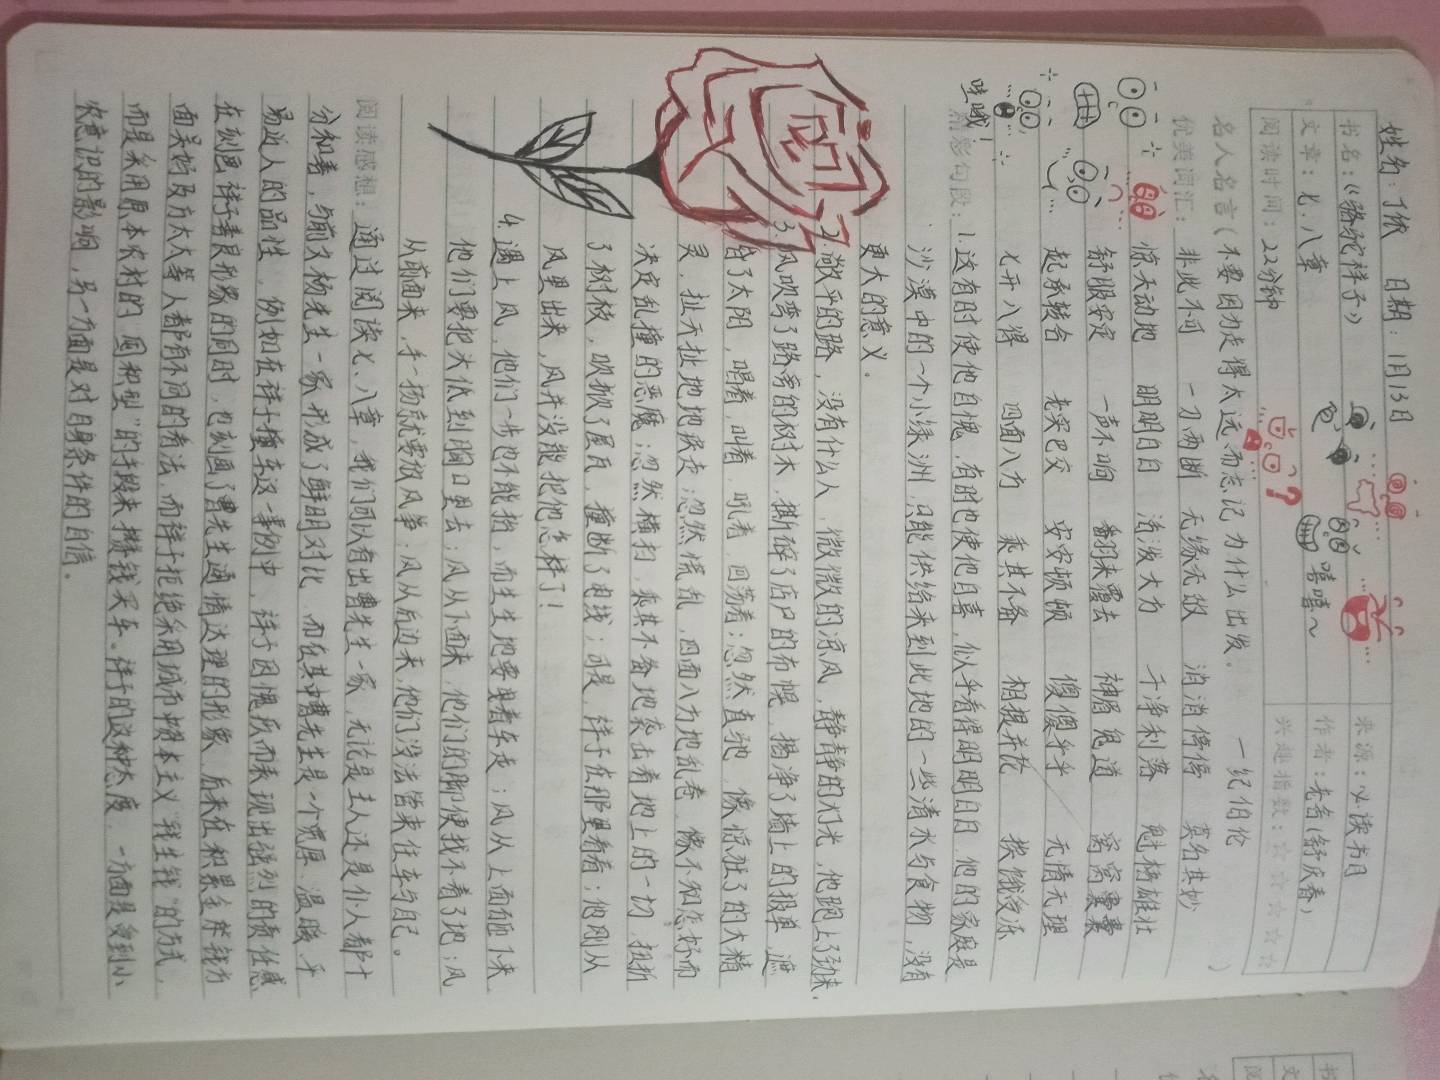 姓名：丁依 日期：1月13日
书名：《骆驼祥子》 来源：必读书目
文章：七、八章 作者：老舍（舒庆春）
阅读时间：22分钟 兴趣指数：☆☆☆☆☆
嘻嘻～
名人名言（不要因为走得太远，而忘记为什么出发。 —纪伯伦 ）
优美词汇：非此不可 一刀两断 无缘无故 消消停停 莫名其妙
惊天动地 明明白白 活泼大方 干净利落 魁梧雄壮
舒服安定 一声不响 翻来覆去 神眉鬼道 窝窝囊囊
起承转合 老实巴交 安安顿顿 傻傻乎乎 无情无理
七开八得 四面八方 乘其不备 相提并论 挨饿受冻
哇哦！
精彩句段：1.这有时使他自愧，有时也使他自喜，似乎看得明明白白，他的家庭是
沙漠中的一个小绿洲，只能供给来到此地的一些清水与食物，没有
更大的意义。
2.敞平的路，没有什么人，微微的凉风，静静的灯光，他跑上了劲来。
3.风吹弯了路旁的树木，撕碎了店户的布幌，揭净了墙上的报单，遮
昏了太阳，唱着，叫着，吼着，回荡着；忽然直驰，像惊狂了的大精
灵，扯天扯地地疾走；忽然慌乱，四面八方地乱卷，像不知怎好而
决定乱撞的恶魔；忽然横扫，乘其不备地袭击着地上的一切，扭折
了树枝，吹掀了屋瓦，撞断了电线；可是，祥子在那里看着；他刚从
风里出来，风并没能把他怎样了！
4.遇上风，他们一步也不能抬，而生生地要曳着车走；风从上面砸下来，
他们要把头低到胸口里去；风从下面来，他们的脚便找不着了地；风
从前面来，手一扬就要放风筝；风从后边来，他们没法管束住车与自己。
阅读感想：通过阅读七、八章，我们可以看出曹先生一家，无论是主人还是仆人都十
分和善，与前文杨先生一家形成了鲜明对比，而在其中曹先生是一个宽厚、温暖、平
易近人的品性，例如在祥子撞车这一事例中，祥子因愧疚而表现出强烈的责任感
在刻画祥子善良形象的同时，也刻画了曹先生通情达理的形象，后来在积累金钱方
面吴妈及方太太等人都有不同的看法，而祥子拒绝采用城市资本主义"钱生钱"的方式，
而是采用原本农村的"囤积型"的手段来攒钱买车。祥子的这种态度，一方面是受到小
农意识的影响，另一方面是对自身条件的自信。
书
文
阅